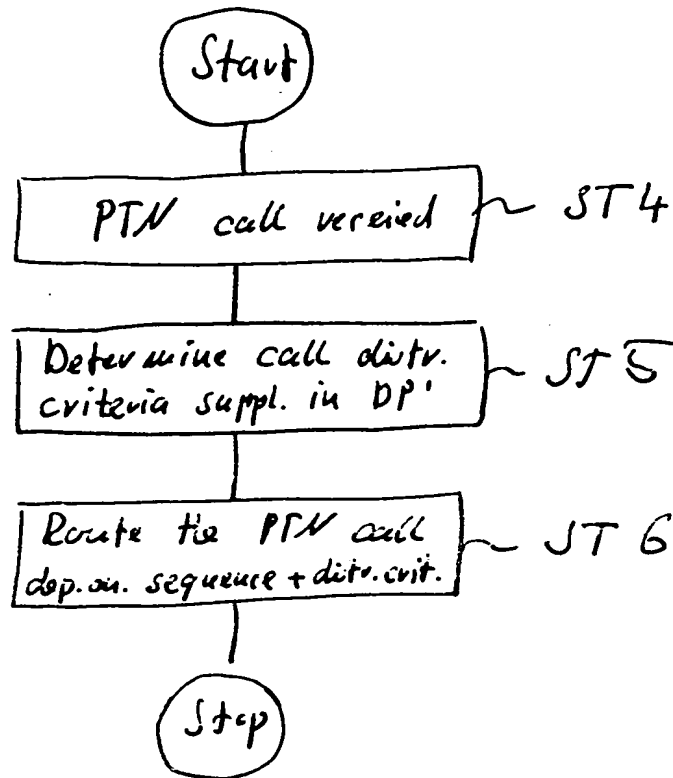 Start
PTN call received
ST4
Determine call distr.
criteria suppl. in DP'
ST5
Route the PTN call
dep.on. sequence + distr.crit.
ST6
Stop